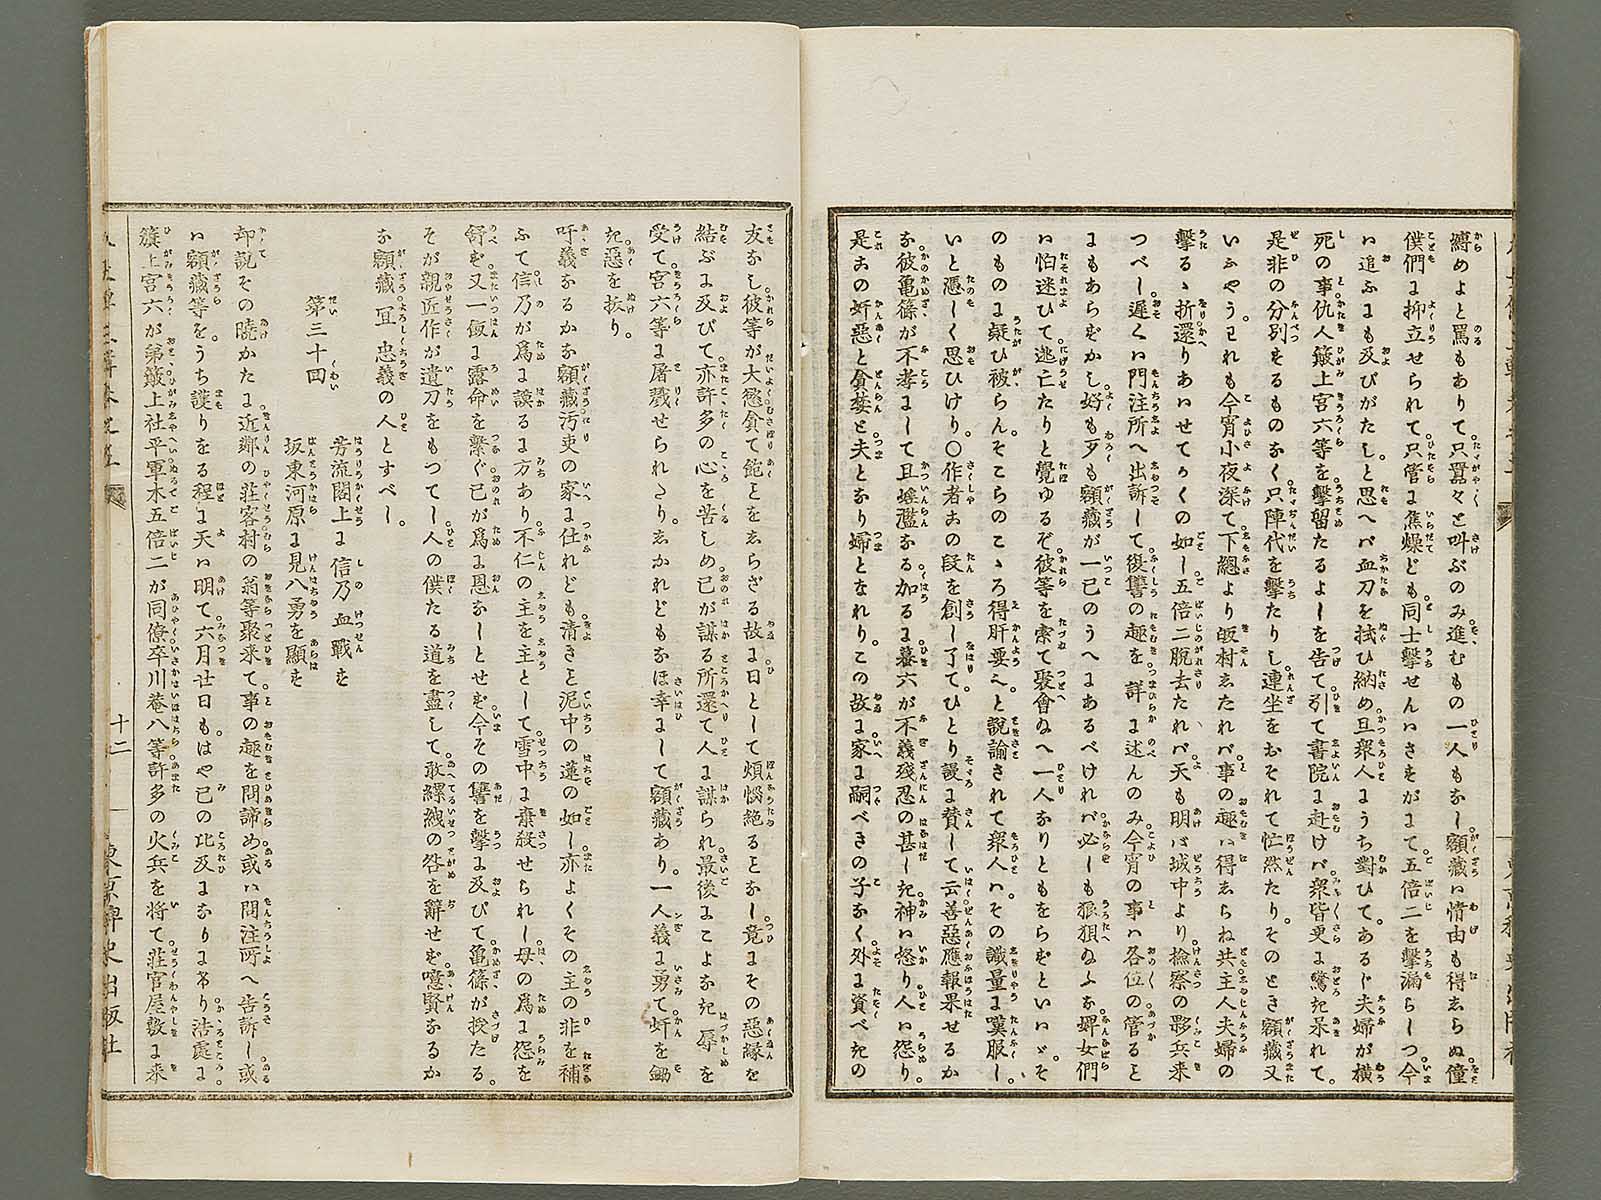 縛めよと罵もありて只囂々と叫ぶのみ進むもの一人もなし額藏ハ情由も得しらぬ僮
僕們に抑立せられて只管に焦燥ども同士撃せんハさすがにて五倍二を撃漏らしつ今
ハ追ふにも及びがたしと思へバ血刀を拭ひ納め且衆人にうち對ひて。あるじ夫婦が横
死の事仇人簸上宮六等を撃留たるよしを告て引て書院に赴けバ衆皆更に驚き呆れて。
是非の分別するものなく只陣代を撃たりし連坐をおそれて忙然たり。そのとき額藏又
いふやうわれも今宵小夜深て下總より皈村したれバ。事の趣ハ得しらね共主人夫婦の
撃るゝ折還りあハせてかくの如し五倍二脱去たれバ。天も明バ城中より撿察の夥兵来
つべし遲くハ門注所へ出訴して復讐の趣を詳に述んのみ今宵の事ハ各位の管ると
にもあらずかし好も歹も額藏が一己のうへにあるべけれバ必しも狼狽ぬふな婢女們
ハ怕迷ひて逃亡たりと覺ゆるぞ彼等を索て聚會ぬへ一人なりともをらずといハヾそ
のものに疑ひ被らん。そこらのこゝろ得肝要ぞと説諭されて衆人ハ。その識量に嘆服し。
いと憑しく思ひけり〇作者この段を創し了てひとり謾に賛して云善惡應報果せるか
な彼亀篠が不孝にして且婬濫なる加るに蟇六が不義殘忍の甚しき神ハ怒り人ハ怨り。
是この奸惡と貪婪と夫となり婦となれり。この故に家に嗣べきの子なく外に資べきの
友なし彼等が大慾貪て飽ことをしらざる故に日として煩惱絶ることなし竟にその惡縁を
結ぶに及びて亦許多の心を苦しめ己が謀る所還て人に謀られ最後にこよなき辱を
受て宮六等に屠戮せられたり。しかれどもなほ幸にして額藏あり。一人義に勇て奸を鋤
き惡を抜り。
吁義なるかな額藏汚吏の家に仕れども。清きこと泥中の蓮の如し亦よくその主の非を補
ふて信乃が爲に謀るに方あり不仁の主を主として。雪中に棄殺せられし母の爲に怨を
舒ず又一飯に露命を繋ぐ己が爲に恩なしとせず今その讐を撃に及びて亀篠が授たる。
そが親近作が遺刀をもつてし人の僕たる道を盡して敢縲絏の咎を辭せず噫賢なるか
な額藏宜忠義の人とすべし。
第三十四回
芳流閣上に信乃血戰す
坂東河原に見八勇を顯す
却説その曉かたに近郷の荘客村の翁等聚来て事の趣を問諦め或ハ問注所へ告訴し或
ハ額藏等を。うち護りをる程に天ハ明て。六月廿日も。はや巳の比及になりにけり浩處に
簸上宮六が弟簸上社平軍木五倍二が同僚卒川菴八等許多の火兵を将て荘官屋敷に来
十二
東京稗史出版社